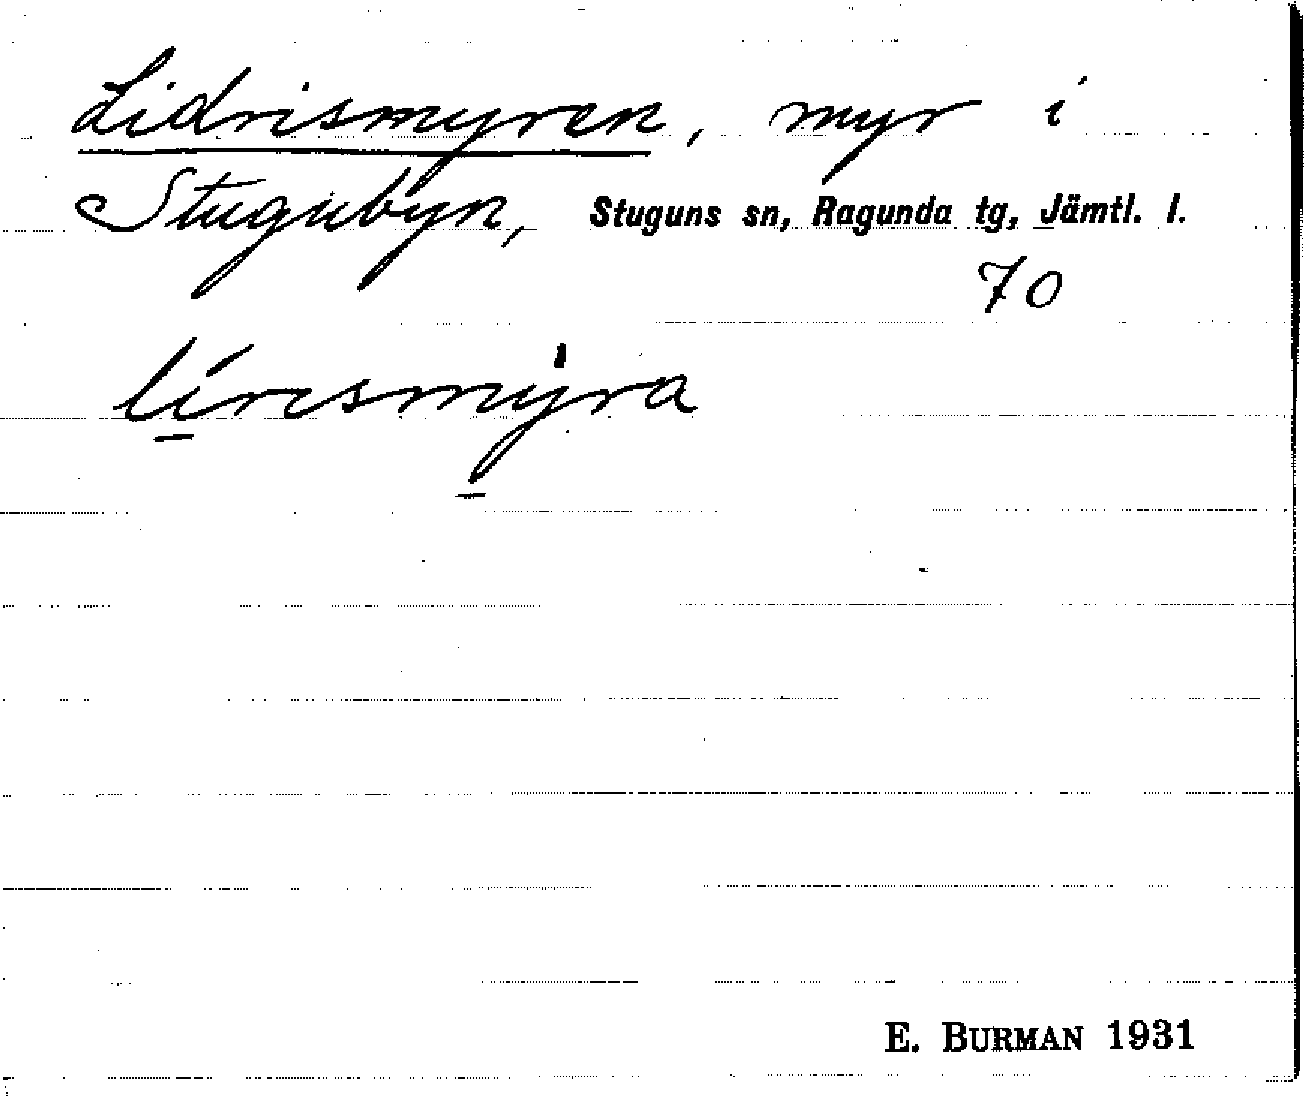 Lidrismyren, myr i
Stugubyn, Stuguns sn, Ragunda tg, Jämtl. l.
70
lírismýra
E. BURMAN 1931